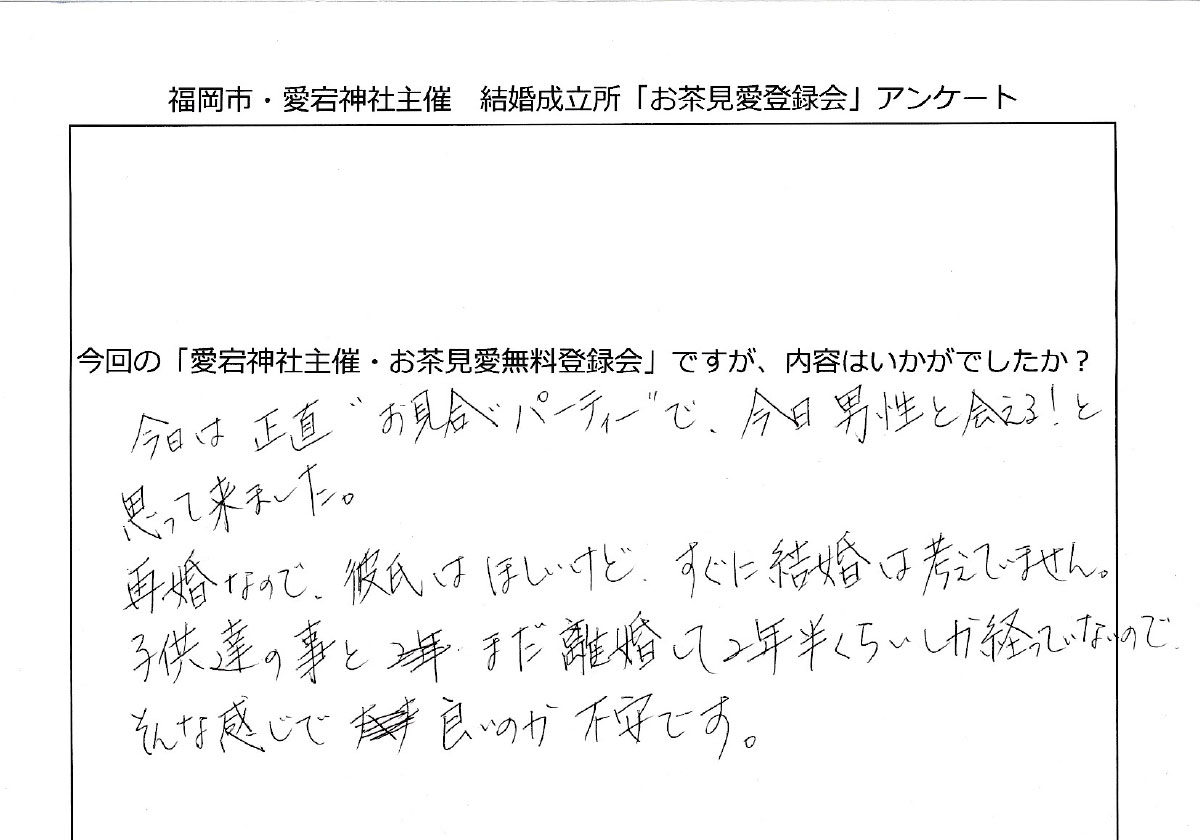 福岡市・愛宕神社主催　結婚成立所「お茶見愛登録会」アンケート
今回の「愛宕神社主催・お茶見愛無料登録会」ですが、内容はいかがでしたか？
今日は正直"お見合いパーティー"で、今日男性と会える！と
思って来ました。
再婚なので、彼氏はほしいけど、すぐに結婚は考えていません。
子供達の事と2年 まだ離婚して2年半くらいしか経っていないので、
そんな感じで 良いのか不安です。